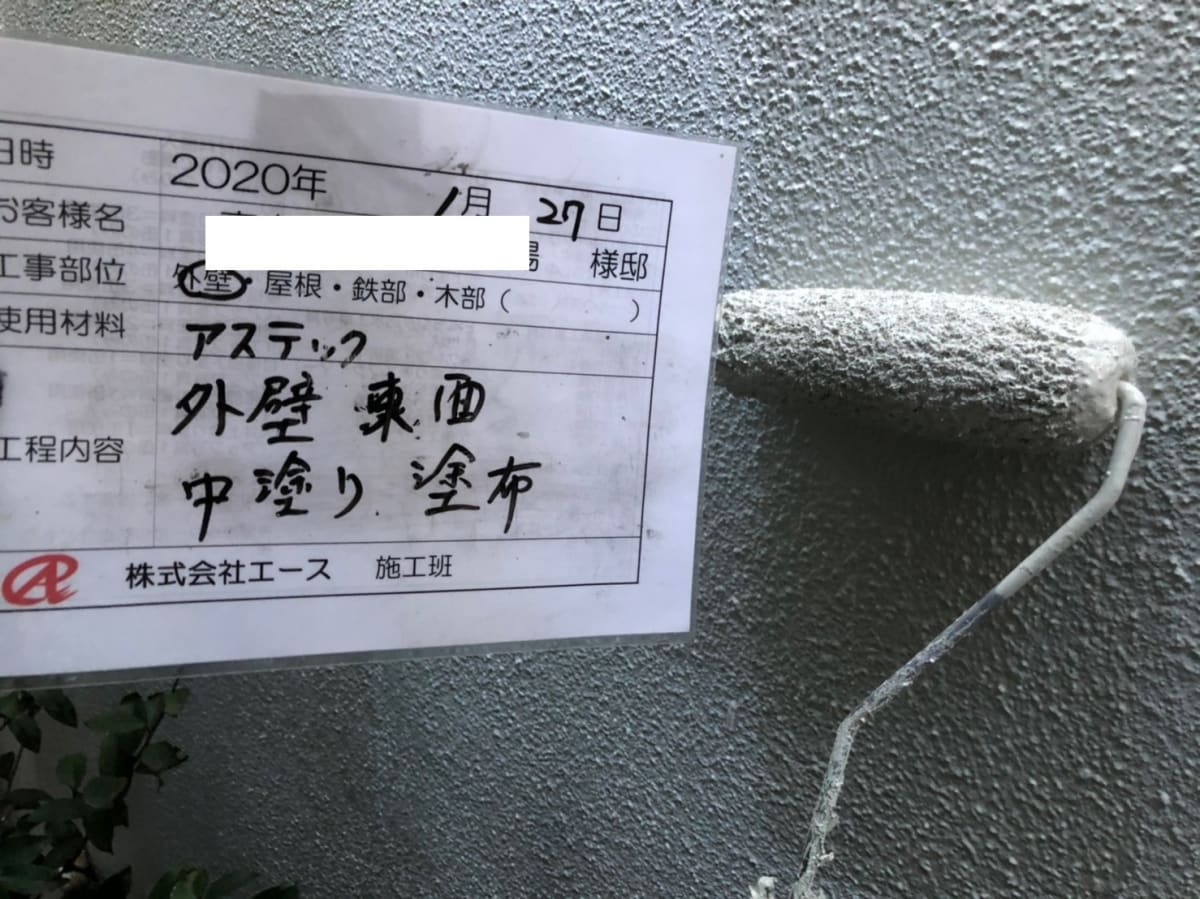 日時 2020年 1月 27日
お客様名 様邸
工事部位 外壁・屋根・鉄部・木部( )
使用材料 アステック
工程内容 外壁 東面
中塗り 塗布
株式会社エース 施工班